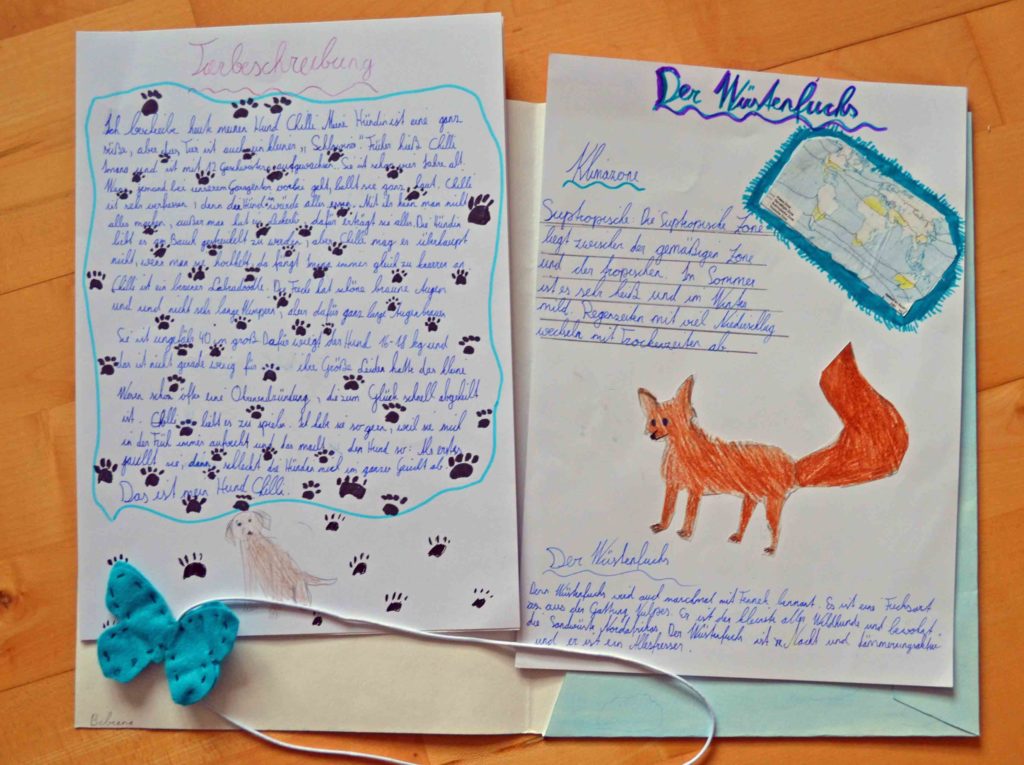 Tierbeschreibung
Ich beschreibe heute meinen Hund Chilli. Meine Hündin ist eine ganz
süße, aber das Tier ist auch ein kleiner „Schlawiner". Früher hieß Chilli
und ist mit 12 Geschwistern aufgewachsen. Sie ist schon vier Jahre alt.
Wenn jemand bei unserem Gangster vorbei geht, bellt sie ganz laut. Chilli
ist sehr verfressen, denn die Hündin würde alles essen. Mit ihr kein man nicht
alles machen, außer man hat ein Leckerli, dafür erträgt sie alles. Die Hündin
liebt es am Bauch gestreichelt zu werden, aber Chilli mag es überhaupt
nicht, wenn man sie hochhebt, da fängt immer gleich zu knurren an.
Chilli ist ein brauner Labradoodle. Die Freche hat schöne braune Augen
und und nicht sehr lange Wimpern, aber dafür ganz lange Augenbrauen.
Sie ist ungefähr 40 m groß. Dafür wiegt der Hund 16-18 kg und
das ist nicht gerade wenig für ihre Größe. Leider hatte das kleine
Wesen schon öfter eine Ohrenentzündung, die zum Glück schnell abgeheilt
ist. Chilli liebt es zu spielen. Ich hab sie so gern, weil sie mich
in der Früh immer aufweckt und das macht den Hund so: Als erstes
sie, dann schleckt die Hündin mich im ganzen Gesicht ab.
Das ist mein Hund Chilli.
Der Wüstenfuchs
Klimazone
Suptropische: Die Suptropische Zone
liegt zwischen der gemäßigen Zone
und der tropischen. Im Sommer
ist es sehr heiß und im Winter
mild. Regenzeiten mit viel Niederschlag
wecheln mit Trockenzeiten ab.
Der Wüstenfuchs
Der Wüstenfuchs wird auch manchmal mit Fenek bennant. Es ist eine Fuchsart
aus der Gattung Vulpes. Er ist der kleinste aller Wildhunde und bewohnt
die Sandwüste Nordafrikas. Der Wüstenfuch ist nacht und dämmerungsaktiv
und er ist ein Allesfresser.